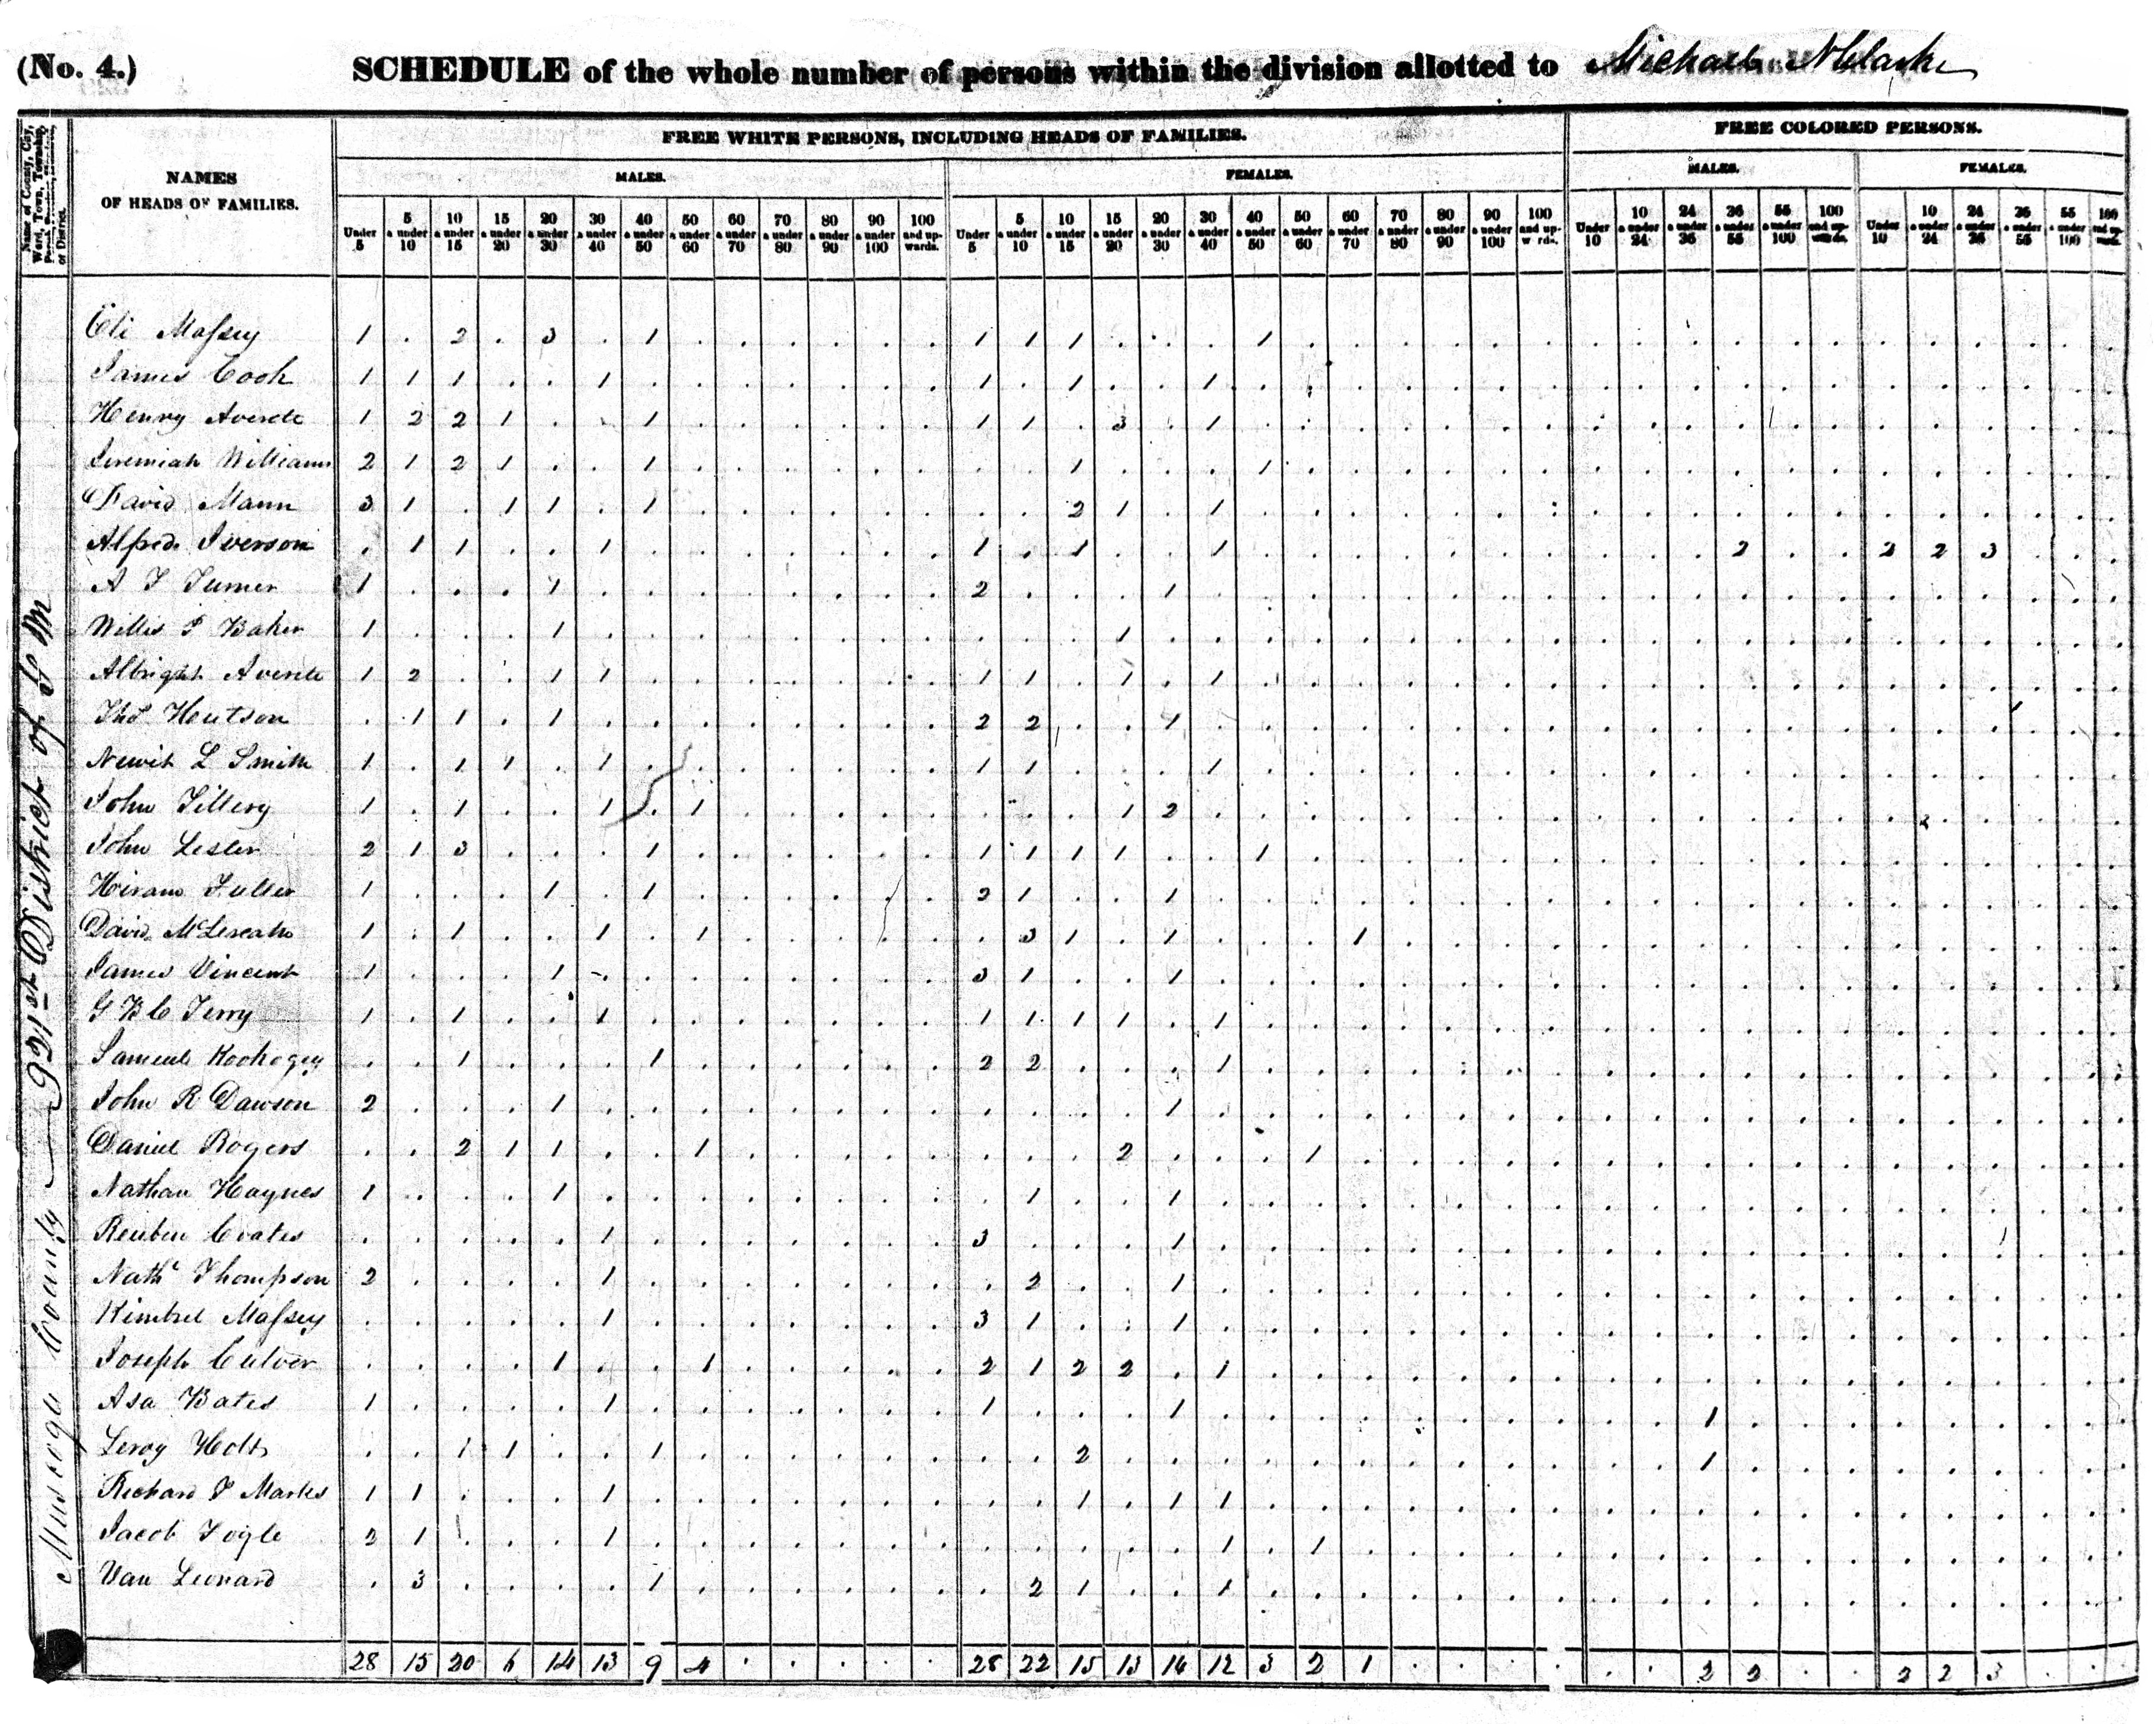 (No. 4.) SCHEDULE of the whole number of persons within the division allotted to Michael N Clarke
Name of County, City, Ward, Town, Township, Parish, Precinct, Hundred, or District.
NAMES OF HEADS OF FAMILIES.
FREE WHITE PERSONS, INCLUDING HEADS OF FAMILIES.
FREE COLORED PERSONS.
MALES. FEMALES. MALES. FEMALES.
Under 5 | 5 & under 10 | 10 & under 15 | 15 & under 20 | 20 & under 30 | 30 & under 40 | 40 & under 50 | 50 & under 60 | 60 & under 70 | 70 & under 80 | 80 & under 90 | 90 & under 100 | 100 and upwards. | Under 5 | 5 & under 10 | 10 & under 15 | 15 & under 20 | 20 & under 30 | 30 & under 40 | 40 & under 50 | 50 & under 60 | 60 & under 70 | 70 & under 80 | 80 & under 90 | 90 & under 100 | 100 and upwards. | Under 10 | 10 & under 24 | 24 & under 36 | 36 & under 55 | 55 & under 100 | 100 and upwards. | Under 10 | 10 & under 24 | 24 & under 36 | 36 & under 55 | 55 & under 100 | 100 and upwards.
Muscogee County 921st District of G M
Eli Massey 1 . 2 . 3 . 1 . . . . . . 1 1 1 . . . 1 . . . . . .
James Cook 1 1 1 . . 1 . . . . . . . 1 . 1 . . 1 . . . . . . .
Henry Averete 1 2 2 1 . . 1 . . . . . . 1 1 . 3 . 1 . . . . . . .
Jeremiah Williams 2 1 2 1 . . 1 . . . . . . . . 1 . . . 1 . . . . . .
David Mann 3 1 . 1 1 . 1 . . . . . . . . 2 1 . 1 . . . . . . .
Alfred Iverson . 1 1 . . 1 . . . . . . . 1 . 1 . . 1 . . . . . . . . . . 2 . . 2 2 3 . . .
A F Turner 1 . . . 1 . . . . . . . . 2 . . . 1 . . . . . . . .
Willis P Baker 1 . . . 1 . . . . . . . . . . . 1 . . . . . . . . .
Albright Averete 1 2 . . 1 1 . . . . . . . 1 1 . 1 . 1 . . . . . . .
Thos Hutson . 1 1 . 1 . . . . . . . . 2 2 . . 1 . . . . . . . .
Newit L Smith 1 . 1 1 . 1 . . . . . . . 1 1 . . . 1 . . . . . . .
John Tillery 1 . 1 . . 1 . 1 . . . . . . . . 1 2 . . . . . . . .
John Lester 2 1 3 . . . 1 . . . . . . 1 1 1 1 . . 1 . . . . . .
Hiram Fuller 1 . . . 1 . 1 . . . . . . 2 1 . . 1 . . . . . . . .
David McLereath 1 . 1 . . 1 . 1 . . . . . . 3 1 . 1 . . . 1 . . . .
James Vincent 1 . . . 1 . . . . . . . . 3 1 . . 1 . . . . . . . .
G B C Terry 1 . 1 . . 1 . . . . . . . 1 1 1 1 . 1 . . . . . . .
Samuel Koohogey . . 1 . . . 1 . . . . . . 2 2 . . . 1 . . . . . . .
John R Dawson 2 . . . 1 . . . . . . . . . . . . 1 . . . . . . . .
Daniel Rogers . . 2 1 1 . . 1 . . . . . . . . 2 . . . 1 . . . . .
Nathan Haynes 1 . . . 1 . . . . . . . . . 1 . . 1 . . . . . . . .
Reuben Coates . . . . . 1 . . . . . . . 3 . . . 1 . . . . . . . .
Nathl Thompson 2 . . . . 1 . . . . . . . . 2 . . 1 . . . . . . . .
Kimbrel Massey . . . . . 1 . . . . . . . 3 1 . . 1 . . . . . . . .
Joseph Culver . . . . 1 . . 1 . . . . . 2 1 2 2 . 1 . . . . . . .
Asa Bates 1 . . . . 1 . . . . . . . 1 . . . 1 . . . . . . . . . . 1 . . . . . . . . .
Leroy Holt . . 1 1 . . 1 . . . . . . . . 2 . . . . . . . . . . . . 1 . . . . . . . . .
Richard T Marks 1 1 . . . 1 . . . . . . . . . 1 . 1 1 . . . . . . .
Jacob Fogle 2 1 . . . 1 . . . . . . . . . . . . 1 . 1 . . . . .
Van Leonard . 3 . . . . 1 . . . . . . . 2 1 . . 1 . . . . . . .
28 15 20 6 14 13 9 4 . . . . . 28 22 15 13 14 12 3 2 1 . . . . . . 2 2 . . 2 2 3 . . .